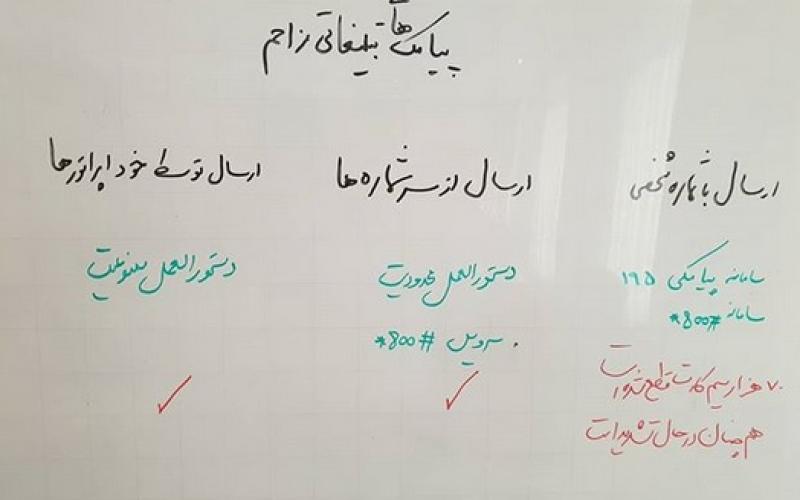 پیامک‌های تبلیغاتی مزاحم
ارسال با شماره شخصی
سامانه پیامکی ۱۹۵
سامانه #۸۰۰*
۷۰ هزار سیم کارت قطع شده است
همچنان در حال تشدید است
ارسال از سرشماره ها
دستورالعمل محدودیت
سرویس #۸۰۰*
ارسال توسط خود اپراتورها
دستورالعمل ممنوعیت